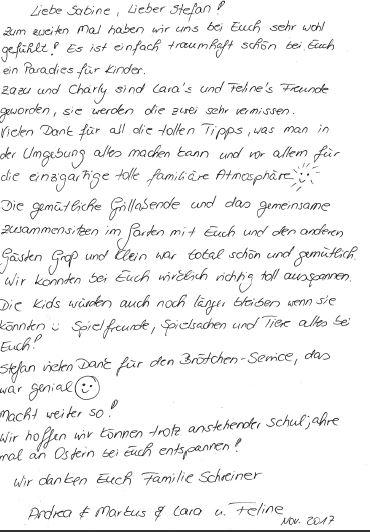 Liebe Sabine, Lieber Stefan!
Zum zweiten Mal haben wir uns bei Euch sehr wohl
gefühlt! Es ist einfach traumhaft schön bei Euch
ein Paradies für Kinder.
Zazu und Charly sind Lara's und Feline's Freunde
geworden, sie werden die zwei sehr vermissen.
Vielen Dank für all die tollen Tipps, was man in
der Umgebung alles machen kann und vor allem für
die einzigartige tolle familiäre Atmosphäre
Die gemütliche Grillabende und das gemeinsame
zusammensitzen im Garten mit Euch und den anderen
Gästen Groß und Klein war total schön und gemütlich.
Wir konnten bei Euch wirklich richtig toll ausspannen.
Die Kids würden auch noch länger bleiben wenn sie
könnten Spielfreunde, Spielsachen und Tiere alles bei
Euch!
Stefan vielen Dank für den Brötchen-Service, das
war genial
Macht weiter so!
Wir hoffen wir können trotz anstehender Schuljahre
mal an Ostern bei Euch entspannen!
Wir danken Euch Familie Schreiner
Andrea & Markus & Lara u. Feline
Nov. 2017